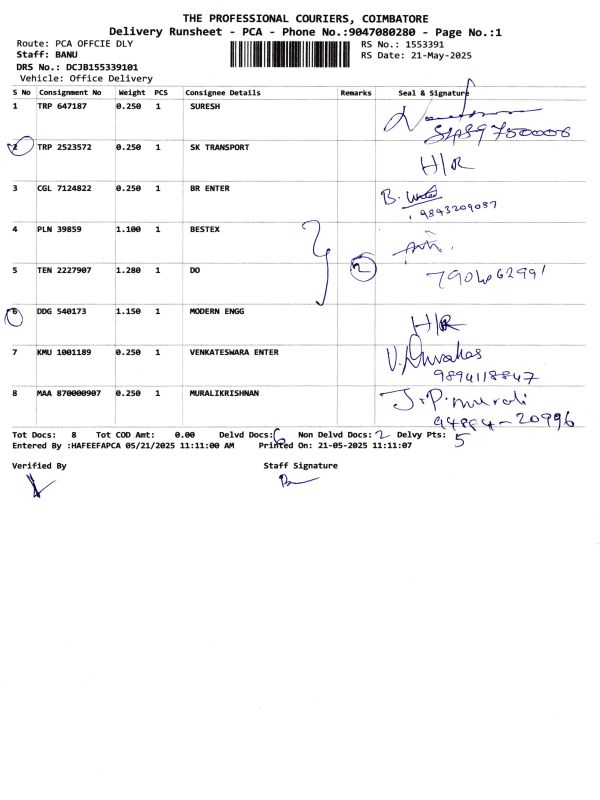 THE PROFESSIONAL COURIERS, COIMBATORE
Delivery Runsheet - PCA - Phone No.:9047080280 - Page No.:1
Route: PCA OFFCIE DLY RS No.: 1553391
Staff: BANU RS Date: 21-May-2025
DRS No.: DCJB155339101
Vehicle: Office Delivery
S No Consignment No Weight PCS Consignee Details Remarks Seal & Signature
1 TRP 647187 0.250 1 SURESH
2 TRP 2523572 0.250 1 SK TRANSPORT H/R
3 CGL 7124822 0.250 1 BR ENTER B.
9893209087
4 PLN 39859 1.100 1 BESTEX
5 TEN 2227907 1.280 1 DO 2
6 DDG 540173 1.150 1 MODERN ENGG H/R
7 KMU 1001189 0.250 1 VENKATESWARA ENTER
9894118847
8 MAA 870000907 0.250 1 MURALIKRISHNAN J.P. murali
94894-20996
Tot Docs: 8 Tot COD Amt: 0.00 Delvd Docs: 6 Non Delvd Docs: 2 Delvy Pts: 5
Entered By :HAFEEFAPCA 05/21/2025 11:11:00 AM Printed On: 21-05-2025 11:11:07
Verified By Staff Signature